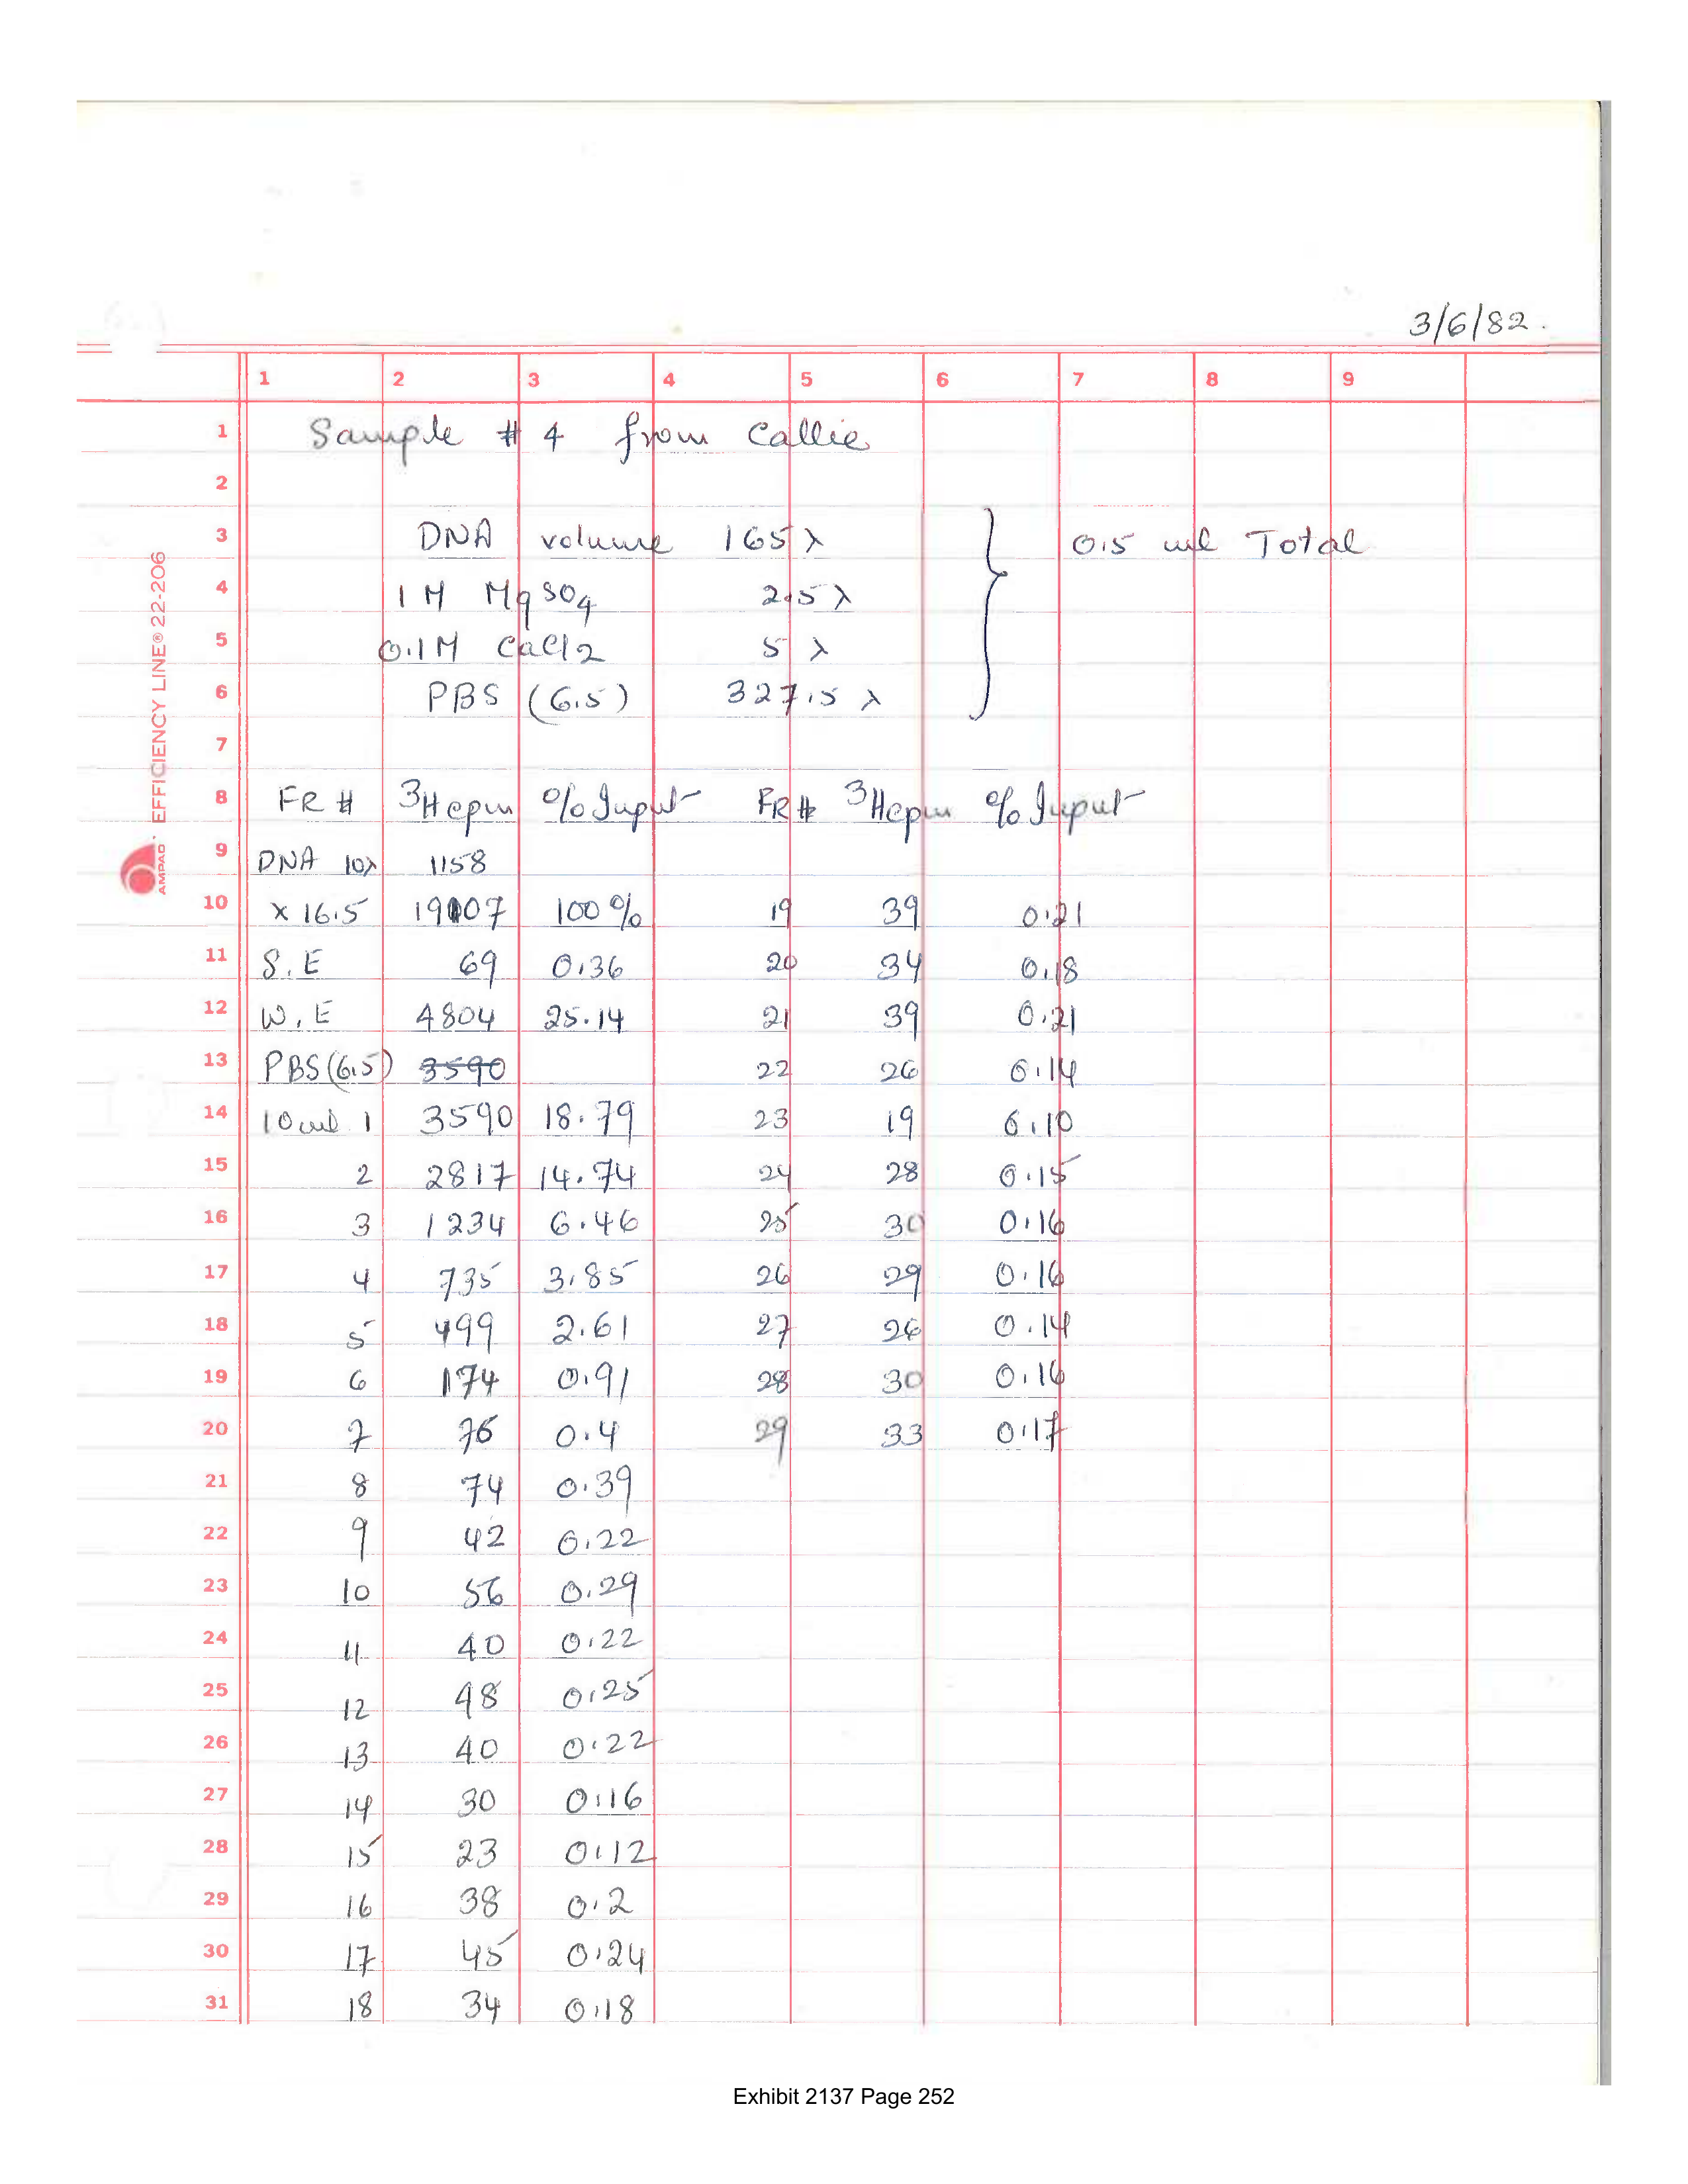 3/6/82.
1 2 3 4 5 6 7 8 9
1 Sample # 4 from Callie
2
3 DNA volume 165 λ } 0.5 ml Total
4 1 M MgSO4 2.5 λ
5 0.1M CaCl2 5 λ
6 PBS (6.5) 327.5 λ
7
8 FR # 3Hcpm % Input FR# 3Hcpm % Input
9 DNA 10λ 1158
10 x 16.5 19107 100% 19 39 0.21
11 S.E 69 0.36 20 34 0.18
12 W.E 4804 25.14 21 39 0.21
13 PBS(6.5) 3590 22 26 0.14
14 10 ml 1 3590 18.79 23 19 0.10
15 2 2817 14.74 24 28 0.15
16 3 1234 6.46 25 30 0.16
17 4 735 3.85 26 29 0.16
18 5 499 2.61 27 26 0.14
19 6 174 0.91 28 30 0.16
20 7 76 0.4 29 33 0.17
21 8 74 0.39
22 9 42 0.22
23 10 56 0.29
24 11 40 0.22
25 12 48 0.25
26 13 40 0.22
27 14 30 0.16
28 15 23 0.12
29 16 38 0.2
30 17 45 0.24
31 18 34 0.18
AMPAD EFFICIENCY LINE® 22-206
Exhibit 2137 Page 252